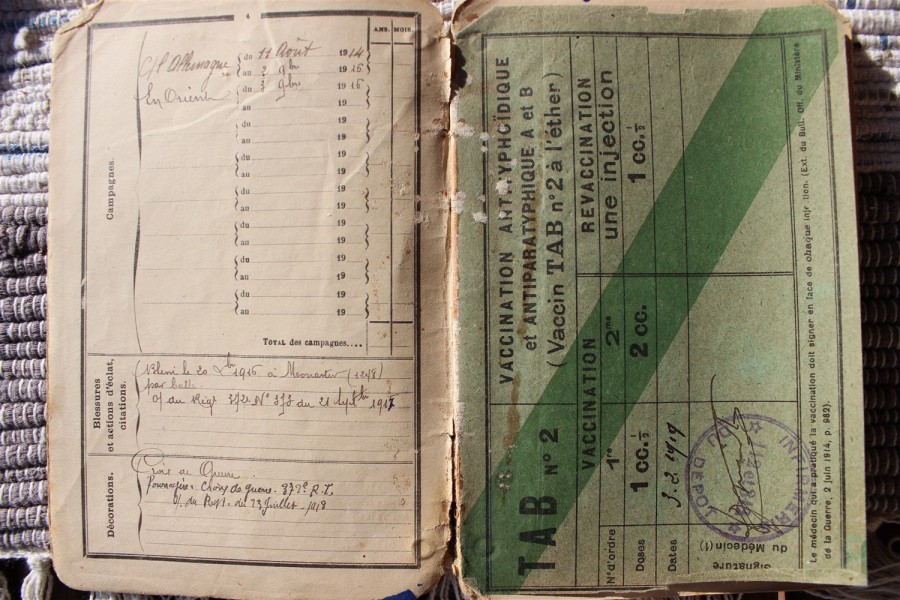 4
ANS. MOIS.
Campagnes.
C/ l'Allemagne du 11 Août 1914
au 2 9bre 1916
En Orient du 3 9bre 1916
au 19
du 19
au 19
du 19
au 19
du 19
au 19
du 19
au 19
du 19
au 19
du 19
au 19
TOTAL des campagnes....
Blessures et actions d'éclat, citations.
le 20 1916 à
par balle
O/ du Régt 372e N° 373 du 21 1917
Décorations.
Croix de Guerre
Fourragère Croix de guerre 372e R.I.
du 23 Juillet 1918
VACCINATION ANTITYPHOÏDIQUE
et ANTIPARATYPHIQUE A et B
(Vaccin TAB n° 2 à l'éther)
TAB N° 2
VACCINATION
REVACCINATION
N° d'ordre 1re 2me une injection
Doses 1 cc. ½ 2 cc. 1 cc. ½
Dates 3.2.1919
Signature
du Médecin (1)
INFIRMERIE
DU DEPOT
Le médecin qui a pratiqué la vaccination doit signer en face de chaque injection. (Ext. du Bull. Off. du Ministère
de la Guerre, 2 juin 1914, p. 982).